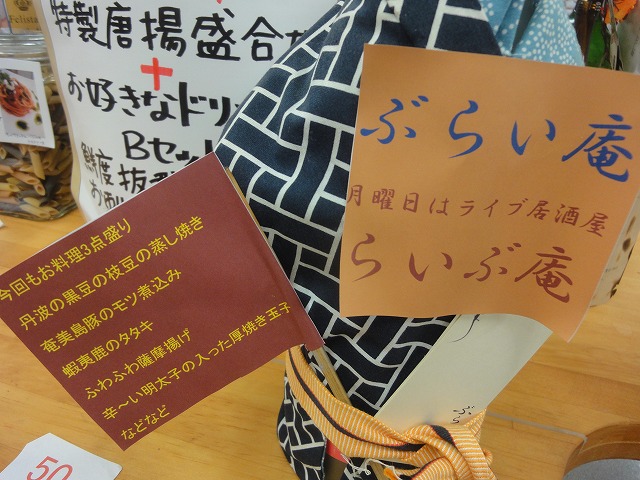 Felista
特製唐揚盛合
+
お好きなドリ
Bセット
鮮度抜群
ぶらい庵
月曜日はライブ居酒屋
らいぶ庵
今回もお料理3点盛り
丹波の黒豆の枝豆の蒸し焼き
奄美島豚のモツ煮込み
蝦夷鹿のタタキ
ふわふわ薩摩揚げ
辛〜い明太子の入った厚焼き玉子
などなど
ぶら
50